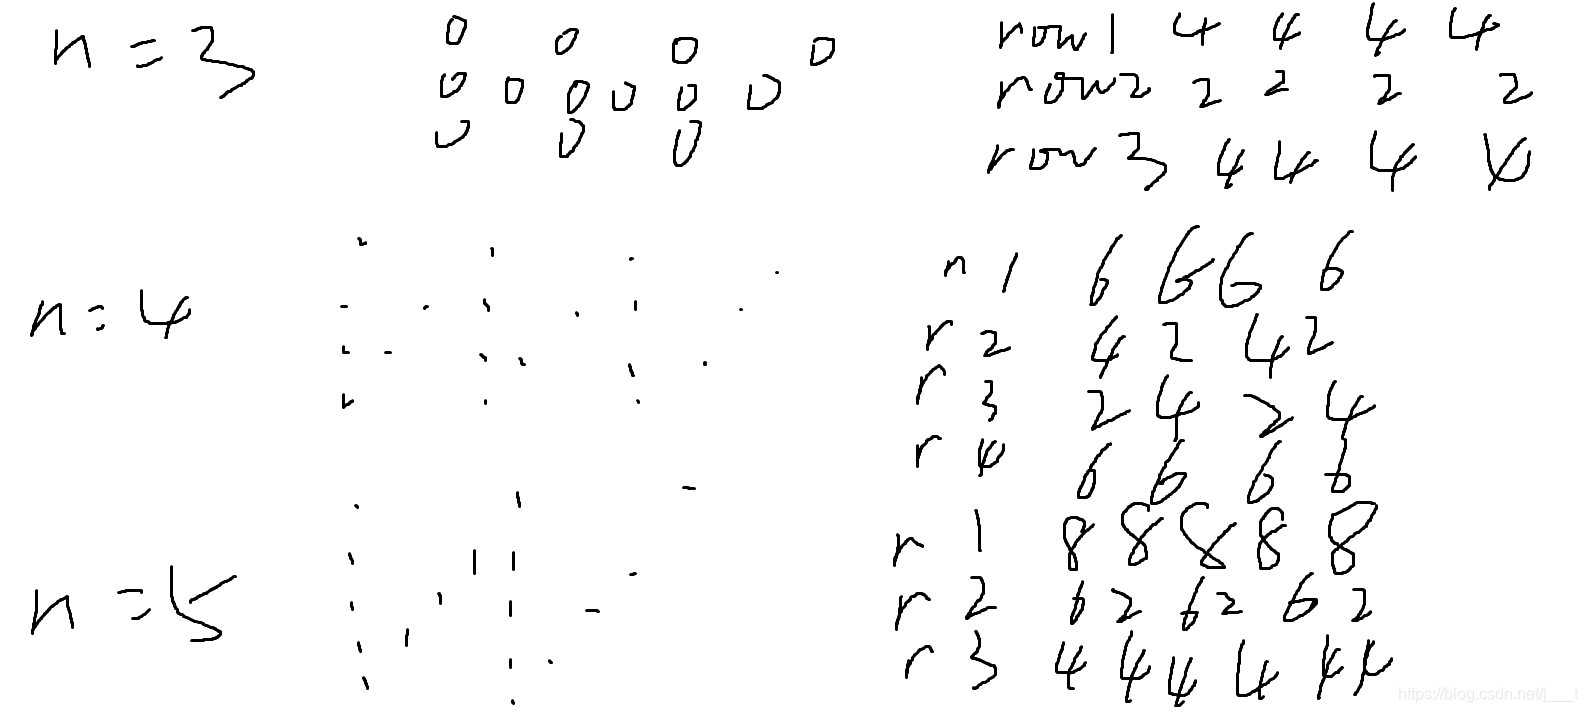 n = 3
0 0 0 0
0 0 0 0 0 0
0 0 0
row1 4 4 4 4
row2 2 2 2 2
row 3 4 4 4 4
n = 4
r 1 6 6 6 6
r 2 4 2 4 2
r 3 2 4 2 4
r 4 6 6 6 6
n = 5
r 1 8 8 8 8 8
r 2 6 2 6 2 6 2
r 3 4 4 4 4 4 4
https://blog.csdn.net/j___t